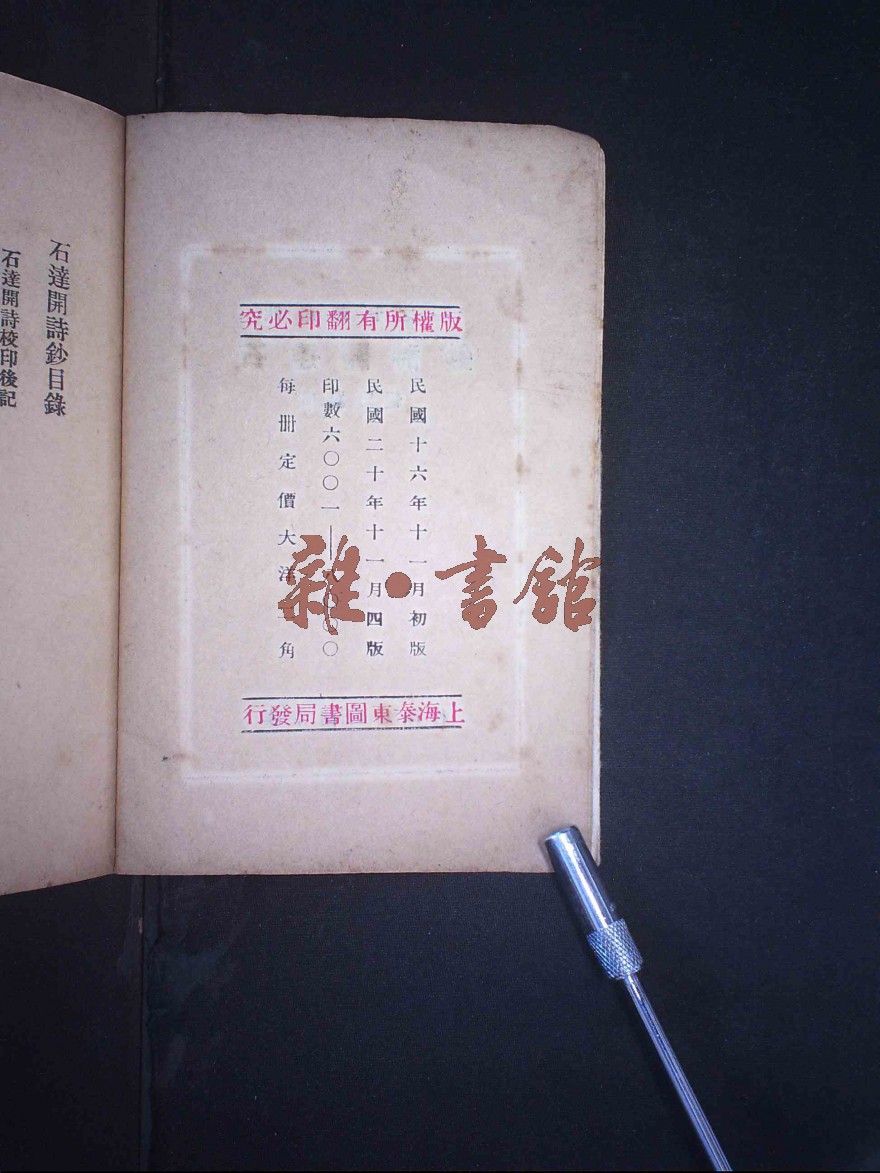 版權所有翻印必究
民國十六年十一月初版
民國二十年十一月四版
印數六〇〇一——八〇〇〇
每冊定價大洋 角
上海泰東圖書局發行
石達開詩鈔目錄
石達開詩校印後記
雜·書館